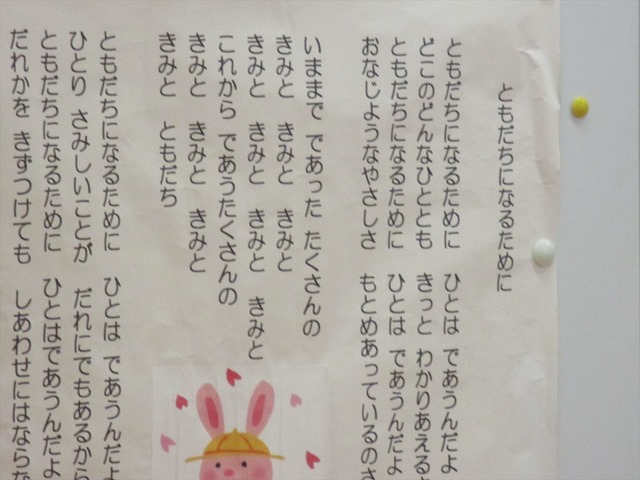 ともだちになるために
ともだちになるために ひとは であうんだよ
どこのどんなひととも きっと わかりあえるさ
ともだちになるために ひとは であうんだよ
おなじようなやさしさ もとめあっているのさ
いままで であった たくさんの
きみと きみと きみと
きみと きみと きみと きみと
これから であうたくさんの
きみと きみと きみと
きみと ともだち
ともだちになるために ひとは であうんだよ
ひとり さみしいことが だれにでもあるから
ともだちになるために ひとはであうんだよ
だれかを きずつけても しあわせにはならな